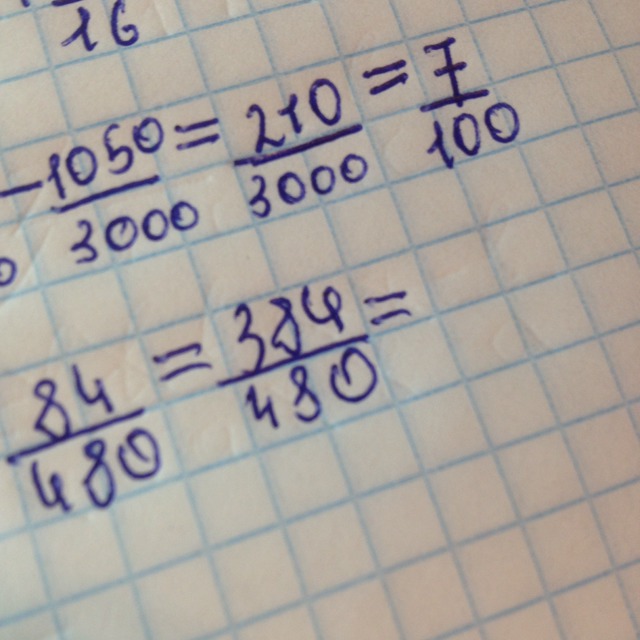 16
- 1050/3000 = 210/3000 = 7/100
84/480 = 384/480 =